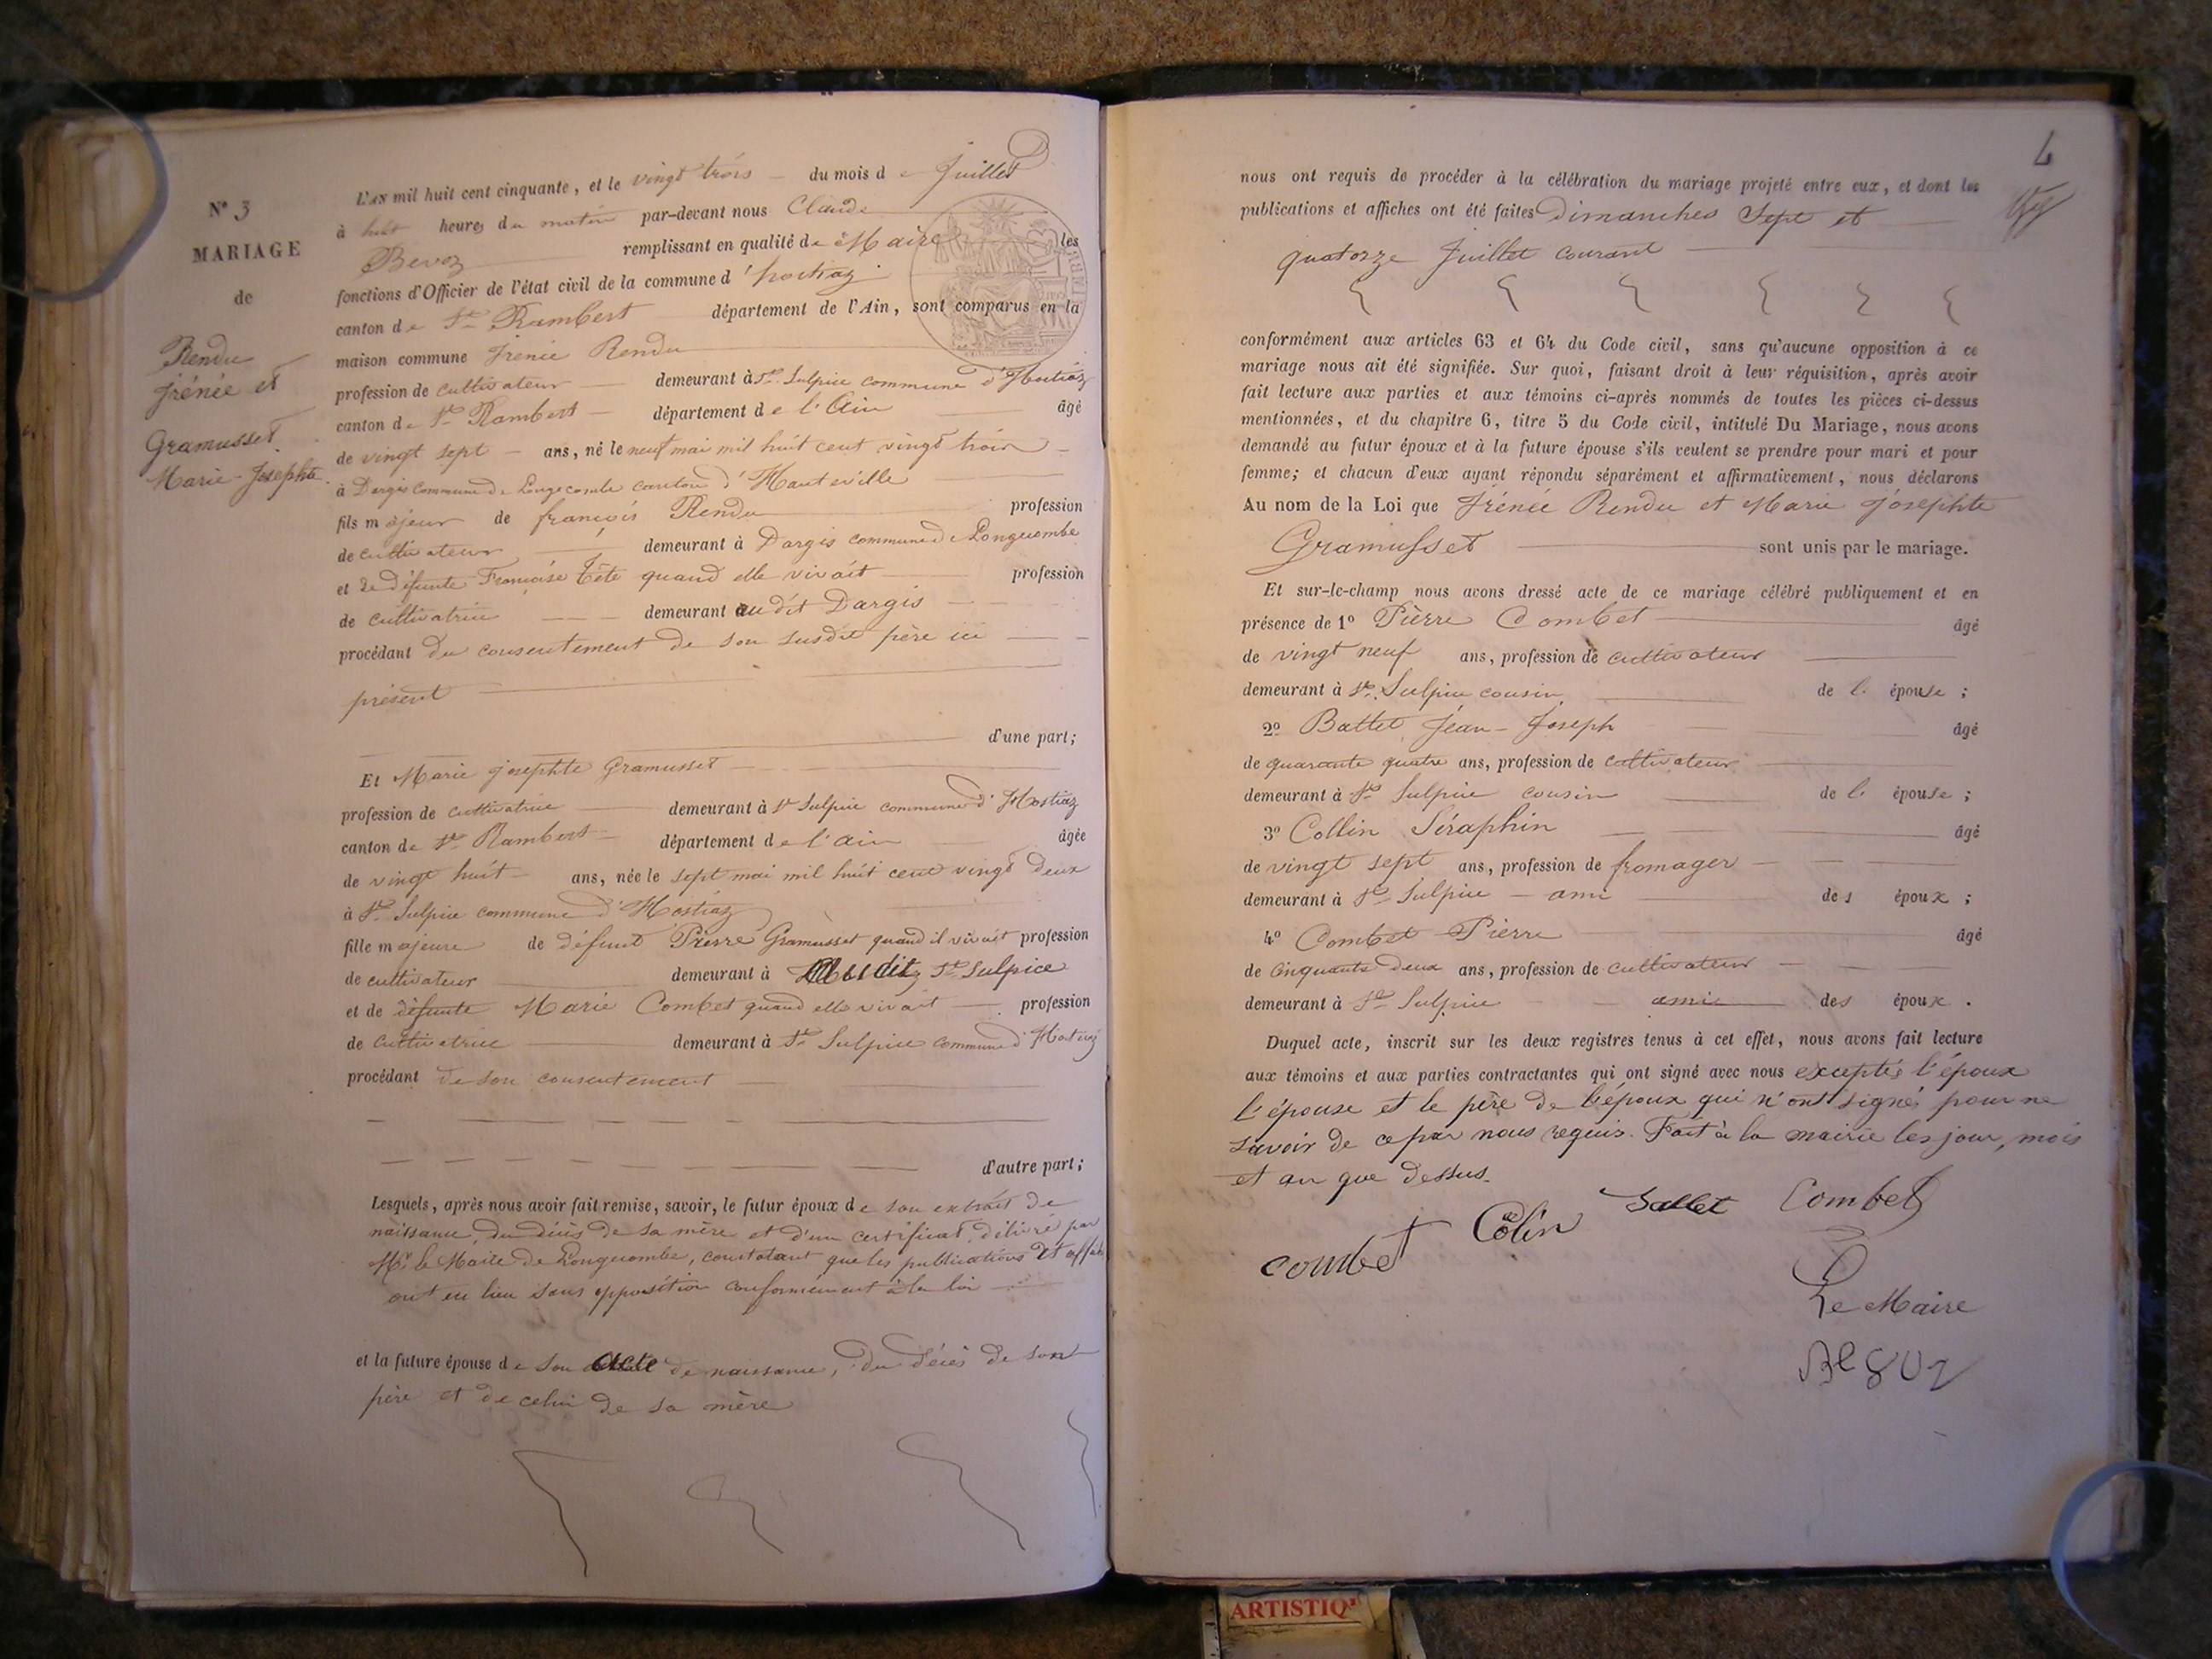 N° 3
MARIAGE
de
Rendu
Irénée et
Gramusset
Marie-Josephte
L'AN mil huit cent cinquante, et le vingt trois du mois de Juillet
à huit heures du matin par-devant nous Claude
Bevoz remplissant en qualité de Maire les
fonctions d'Officier de l'état civil de la commune d'hostiaz
canton de St Rambert département de l'Ain, sont comparus en la
maison commune Irénée Rendu
profession de cultivateur demeurant à St. Sulpice commune d'Hostiaz
canton de St Rambert département de l'Ain âgé
de vingt sept ans, né le neuf mai mil huit cent vingt trois
à Dargis commune de Longecombe canton d'Hauteville
fils majeur de françois Rendu profession
de cultivateur demeurant à Dargis commune de Longecombe
et de défunte Françoise Tête quand elle vivait profession
de cultivatrice demeurant au dit Dargis
procédant du consentement de son susdit père ici
présent
d'une part;
Et Marie josephte Gramusset
profession de cultivatrice demeurant à St Sulpice commune d'Hostiaz
canton de St. Rambert département de l'ain âgée
de vingt huit ans, née le sept mai mil huit cent vingt deux
à St. Sulpice commune d'Hostiaz
fille majeure de défunt Pierre Gramusset quand il vivait profession
de cultivateur demeurant à Audit St Sulpice
et de défunte Marie Combet quand elle vivait profession
de cultivatrice demeurant à St Sulpice commune d'Hostiaz
procédant de son consentement
d'autre part;
Lesquels, après nous avoir fait remise, savoir, le futur époux de son extrait de
naissance, du décès de sa mère et d'un certificat délivré par
Mr. le Maire de Longecombe, constatant que les publications et affiches
ont eu lieu sans opposition conformément à la loi
et la future épouse de son acte de naissance, du décès de son
père et de celui de sa mère
4
nous ont requis de procéder à la célébration du mariage projeté entre eux, et dont les
publications et affiches ont été faites Dimanches Sept et
quatorze Juillet courant
conformément aux articles 63 et 64 du Code civil, sans qu'aucune opposition à ce
mariage nous ait été signifiée. Sur quoi, faisant droit à leur réquisition, après avoir
fait lecture aux parties et aux témoins ci-après nommés de toutes les pièces ci-dessus
mentionnées, et du chapitre 6, titre 5 du Code civil, intitulé Du Mariage, nous avons
demandé au futur époux et à la future épouse s'ils veulent se prendre pour mari et pour
femme; et chacun d'eux ayant répondu séparément et affirmativement, nous déclarons
Au nom de la Loi que Irénée Rendu et Marie josephte
Gramusset sont unis par le mariage.
Et sur-le-champ nous avons dressé acte de ce mariage célébré publiquement et en
présence de 1° Pierre Combet âgé
de vingt neuf ans, profession de cultivateur
demeurant à St. Sulpice cousin de l'épouse;
2° Battet Jean-Joseph âgé
de quarante quatre ans, profession de cultivateur
demeurant à St. Sulpice cousin de l'épouse;
3° Collin Séraphin âgé
de vingt sept ans, profession de fromager
demeurant à St. Sulpice ami des époux;
4° Combet Pierre âgé
de cinquante deux ans, profession de cultivateur
demeurant à St Sulpice ami des époux.
Duquel acte, inscrit sur les deux registres tenus à cet effet, nous avons fait lecture
aux témoins et aux parties contractantes qui ont signé avec nous exceptés l'époux
l'épouse et le père de l'époux qui n'ont signés pour ne
savoir de ce par nous requis. Fait à la mairie les jour, mois
et an que dessus.
Combet Colin Battet Combet
Le Maire
Bevoz
ARTISTIQ